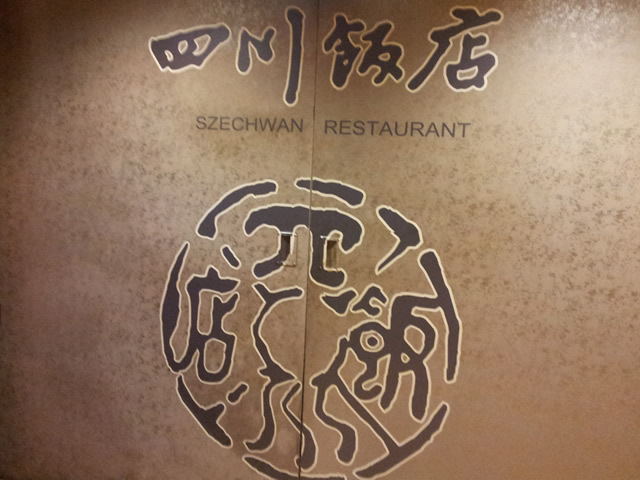 四川飯店
SZECHWAN RESTAURANT